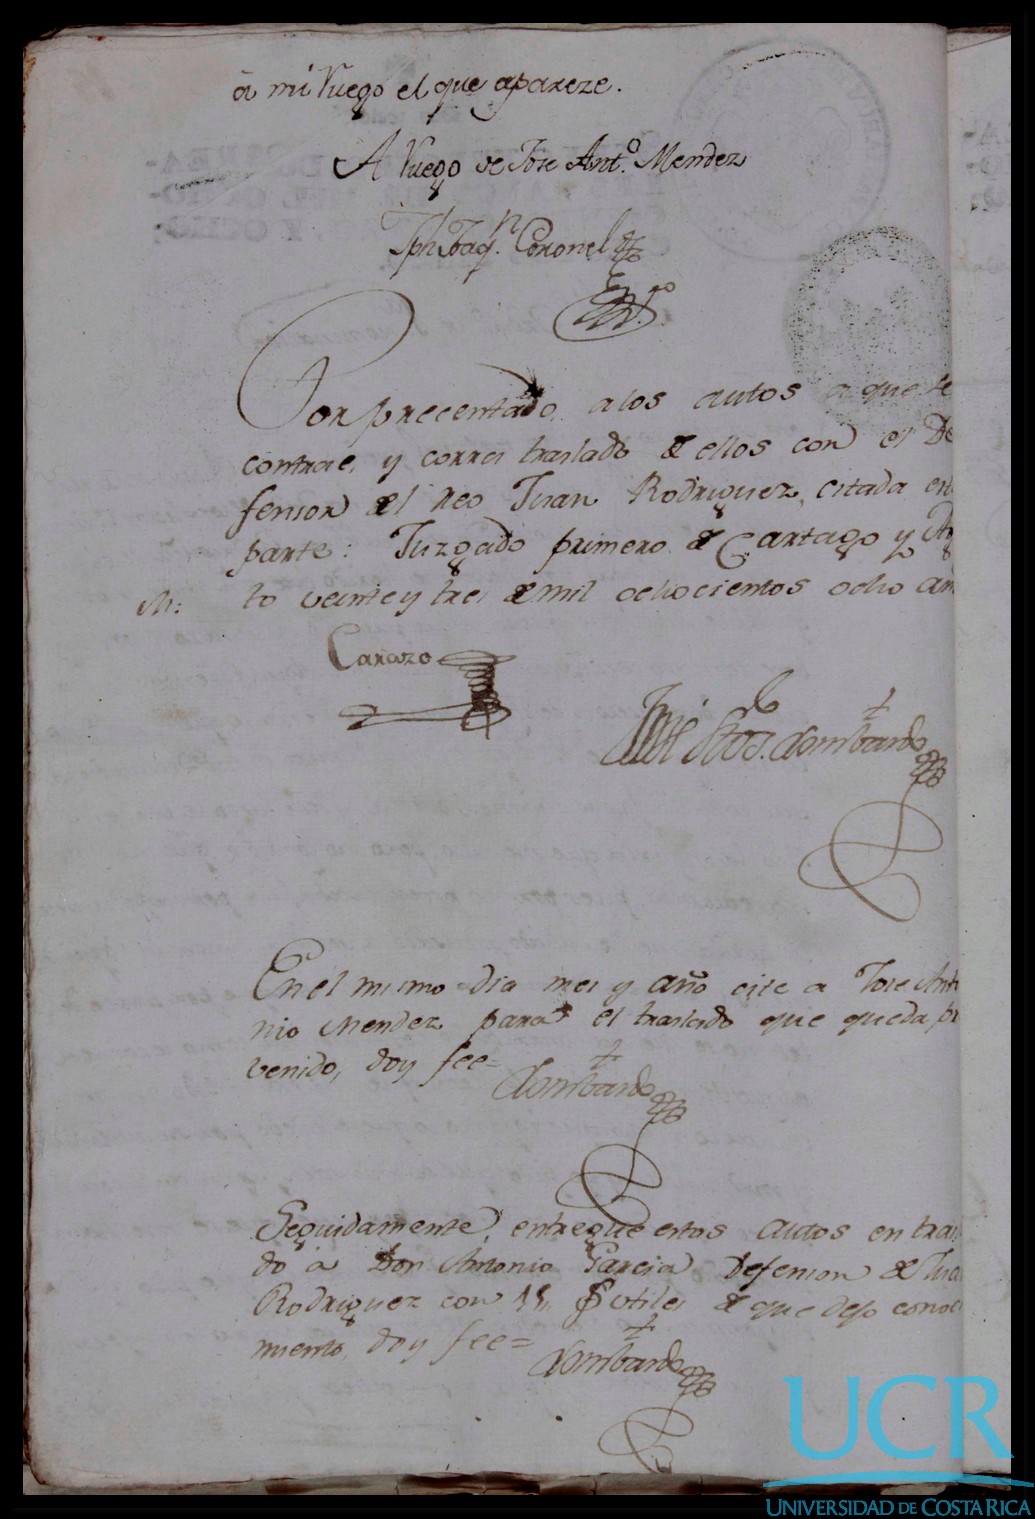 à mi Ruego el que apareze.
A Ruego de Jose Ant.º Mendez
Jph Joaq.n Coronel
Por precentado, a los autos a que se
contrae, y correi traslado de ellos con el De
fensor del reo Juan Rodriguez, citada esta
parte: Juzgado primero de Cartago y Ag
to veinte y trei de mil ochocientos ocho añ
Carazo
José Lombardo
En el mismo dia mes y año cite a Jose Anto
nio Mendez para el traslado que queda pr
venido, doy fee=
Lombardo
Seguidamente, entregue estos autos en trasl
do a Don Antonio Garcia Defensor de Jua
Rodriguez con 11 utiles de que dejo conoci
miento, doy fee=
Lombardo
UCR
UNIVERSIDAD DE COSTA RICA